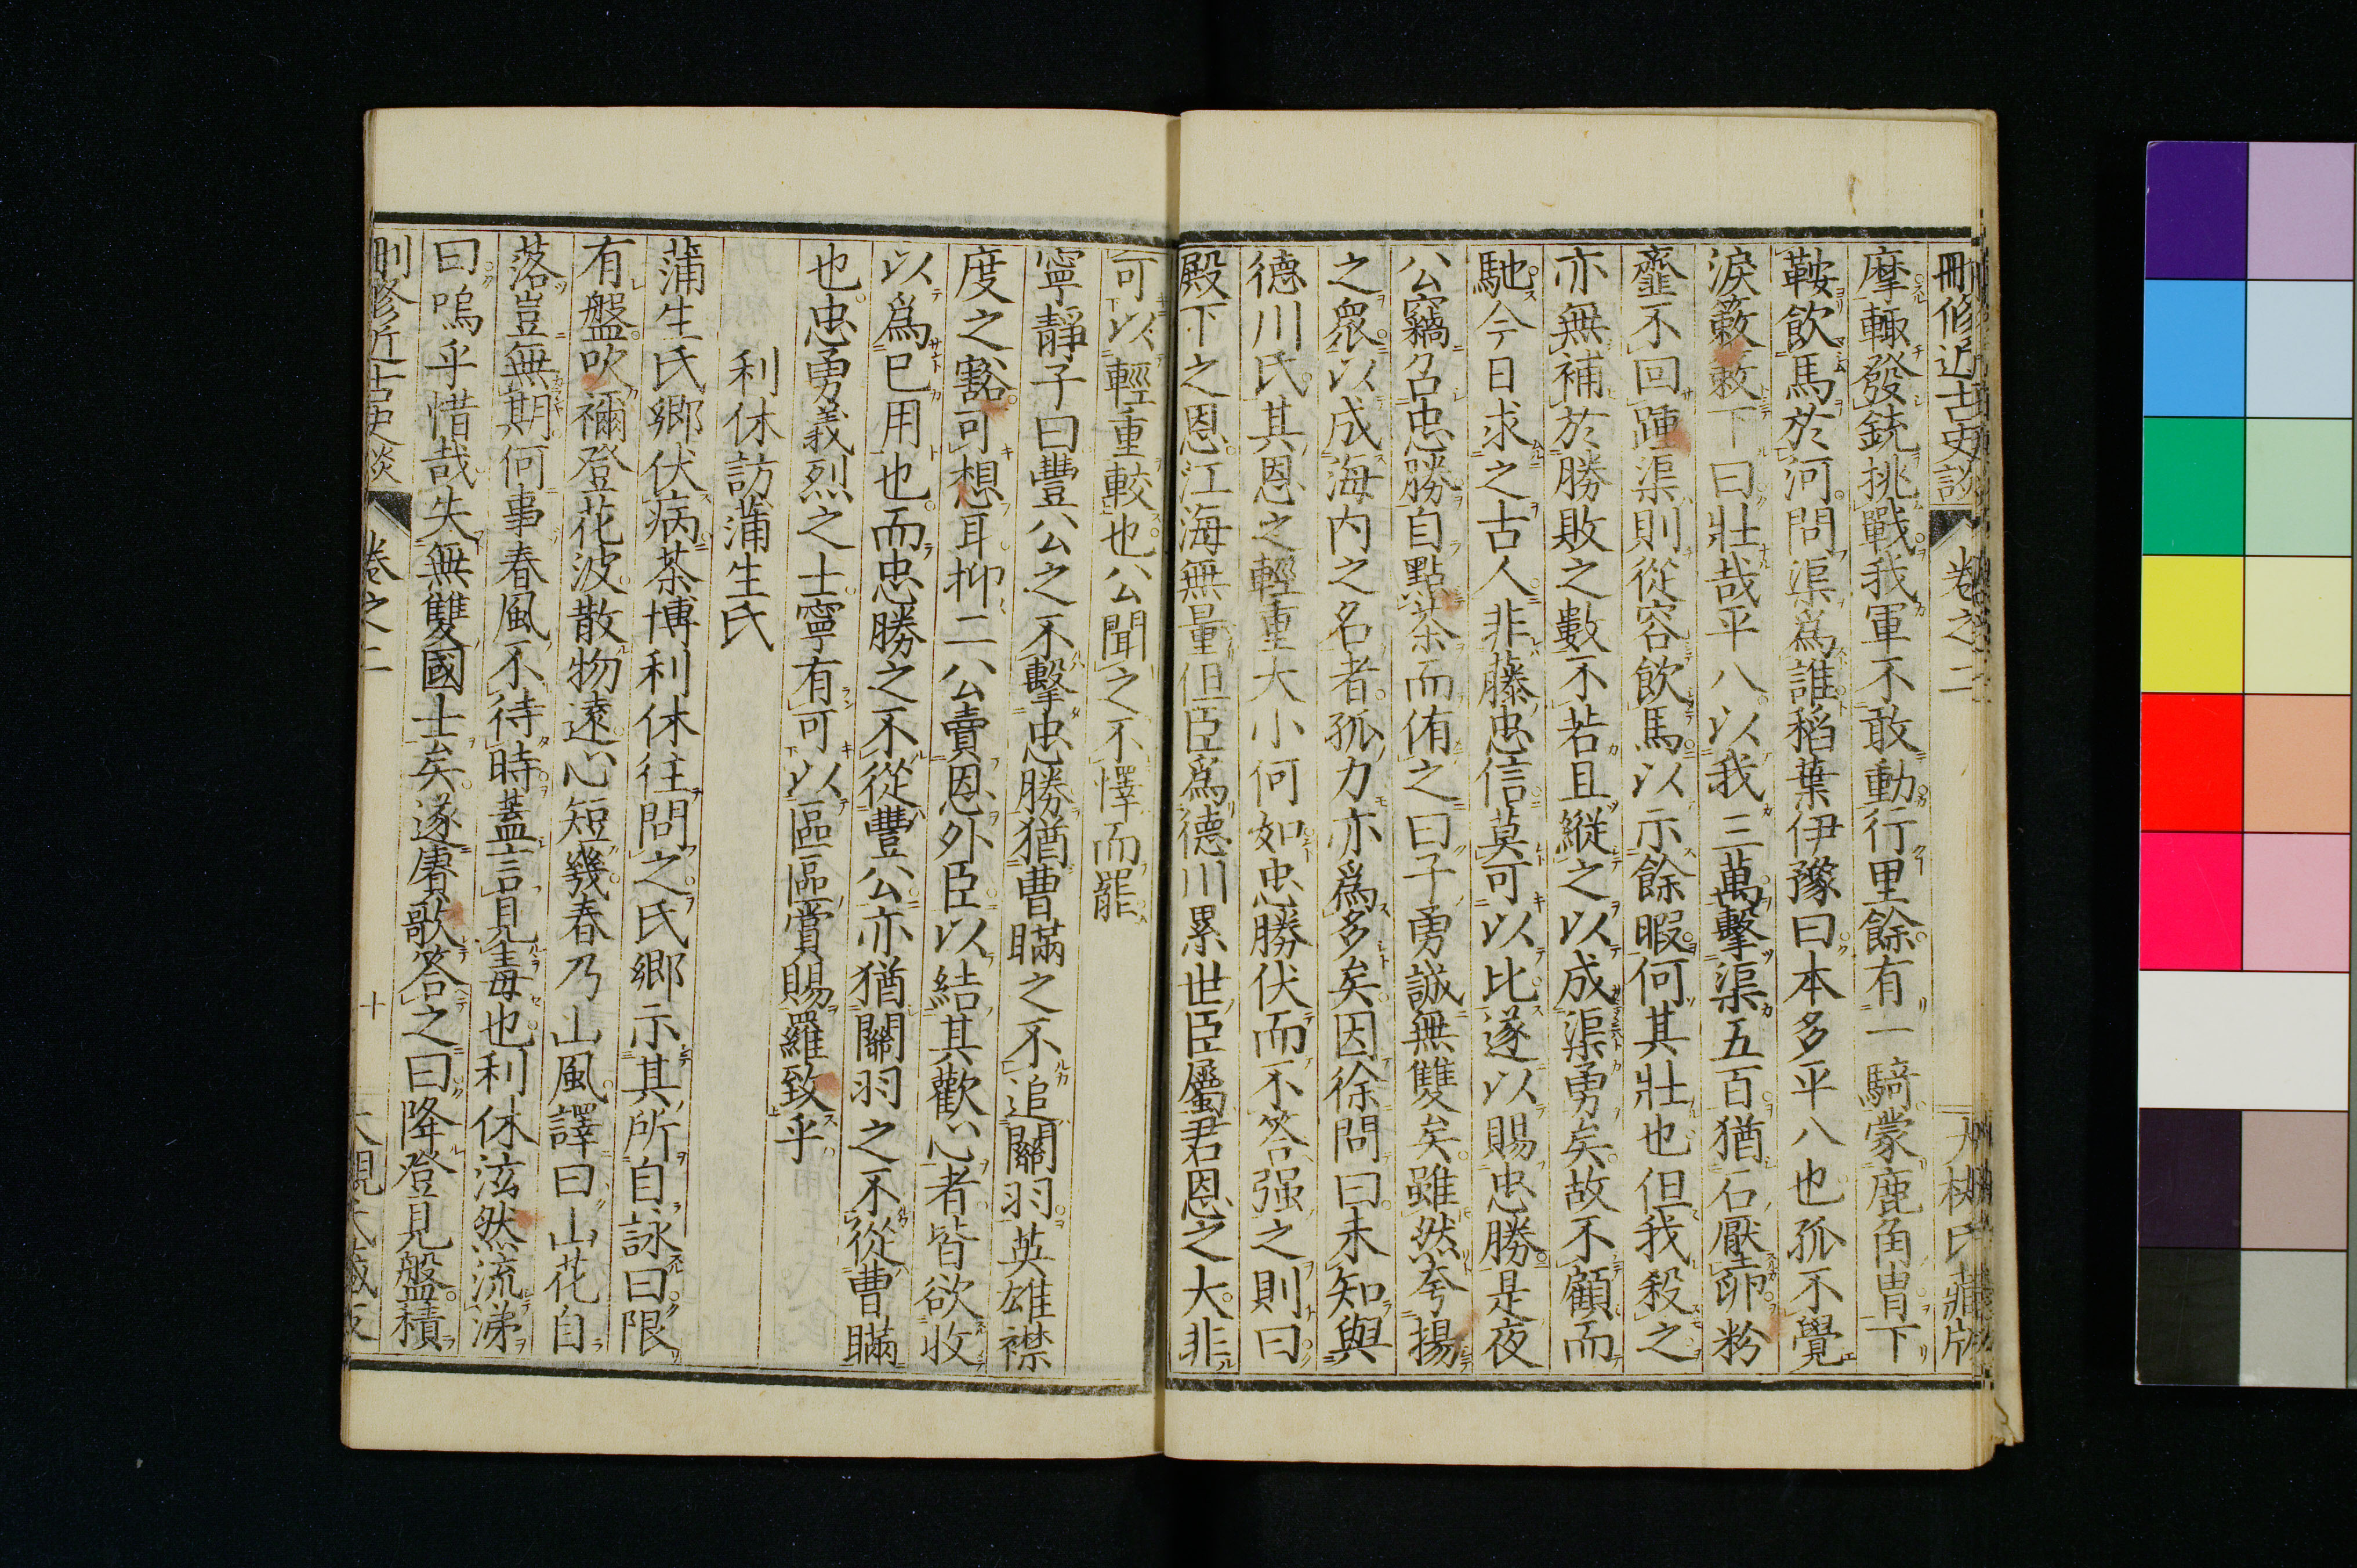 刪修近古史談 卷之二 大槻氏藏版
摩輙發銃挑戰我軍不敢動行里餘有一騎蒙鹿角冑下
鞍飮馬於河問渠爲誰稻葉伊豫曰本多平八也孤不覺
淚簌簌下曰壯哉平八以我三萬擊渠五百猶石壓卵粉
韲不回踵渠則從容飮馬以示餘暇何其壯也但我殺之
亦無補於勝敗之數不若且縱之以成渠勇矣故不顧而
馳今日求之古人非藤忠信莫可以比遂以賜忠勝是夜
公竊召忠勝自點茶而侑之曰子勇誠無雙矣雖然夸揚
之衆以成海內之名者孤力亦爲多矣因徐問曰未知與
德川氏其恩之輕重大小何如忠勝伏而不答强之則曰
殿下之恩江海無量但臣爲德川累世臣屬君恩之大非
可以輕重較也公聞之不懌而罷
寧靜子曰豐公之不擊忠勝猶曹瞞之不追關羽英雄襟
度之豁可想耳抑二公賣恩外臣以結其歡心者皆欲收
以爲已用也而忠勝之不從豐公亦猶關羽之不從曹瞞
也忠勇義烈之士寧有可以區區賞賜羅致乎
利休訪蒲生氏
蒲生氏鄉伏病茶博利休往問之氏鄉示其所自詠曰限
有盤吹禰登花波散物遠心短幾春乃山風譯曰山花自
落豈無期何事春風不待時蓋言見毒也利休泫然流涕
曰嗚乎惜哉失無雙國士矣遂賡歌答之曰降登見盤積
刪修近古史談 卷之二 十 大槻氏藏版